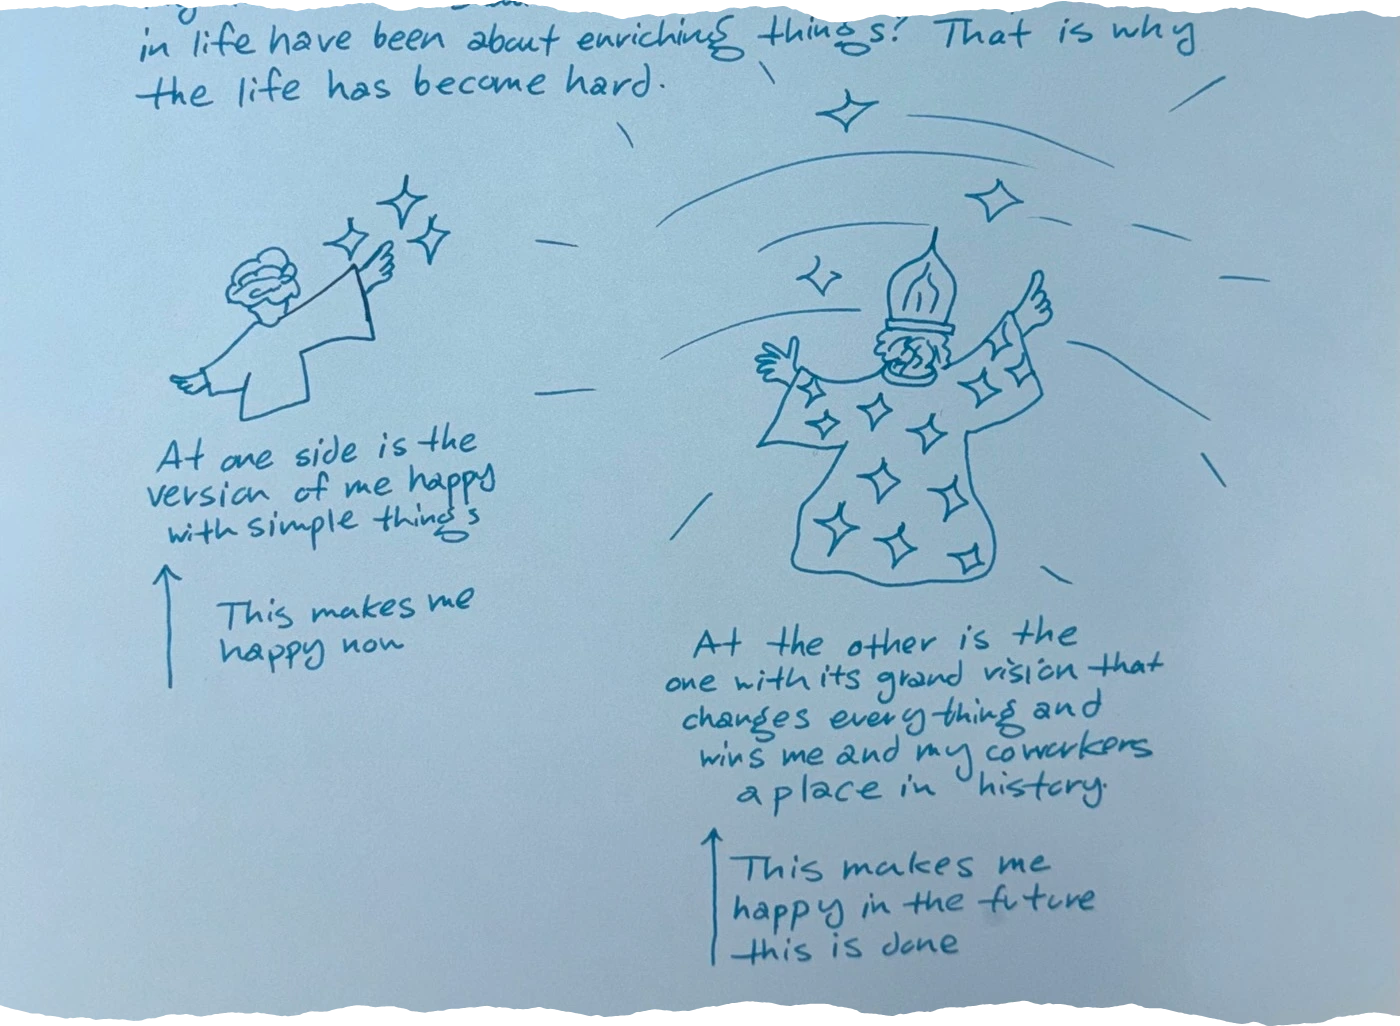 in life have been about enriching things? That is why
the life has become hard.
At one side is the
version of me happy
with simple things
This makes me
happy now
At the other is the
one with its grand vision that
changes everything and
wins me and my coworkers
a place in history.
This makes me
happy in the future
this is done